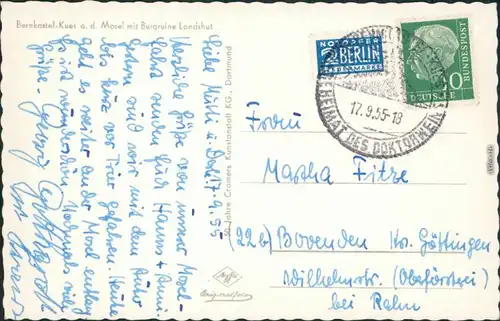 Bernkastel-Kues a. d. Mosel mit Burgruine Landshut
17.9.55
Liebe Mutti u.
Herzliche Grüße von unserer Mosel-
fahrt senden
Gestern sind wir mit dem Auto
bis kurz vor Trier gefahren. Heute
geht es weiter an der Mosel entlang
Es ist wunderschön. Nochmals viele
Grüße
50 Jahre Cramers Kunstanstalt KG., Dortmund
NOTOPFER
2 BERLIN
STEUERMARKE
DEUTSCHE
BUNDESPOST
17.9.55-18
HEIMAT DES DOKTORWEIN
Frau
Martha Fitze
(22b) Bovenden Kr. Göttingen
Wilhelmstr. (Oberförsterei)
bei Rahn